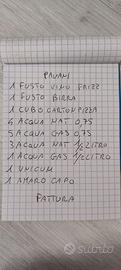 PAVANI
1 FUSTO VINO FRIZZ
1 FUSTO BIRRA
1 CUBO CARTON PIZZA
6 ACQUA NAT 0,75
5 ACQUA GAS 0,75
3 ACQUA NAT 1/2 LITRO
1 ACQUA GAS 1/2 LITRO
1 UNICUM
1 AMARO CAPO
FATTURA
subito